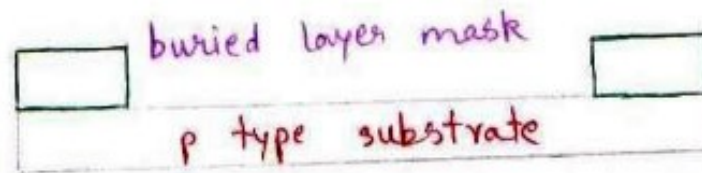 buried layer mask
p type substrate